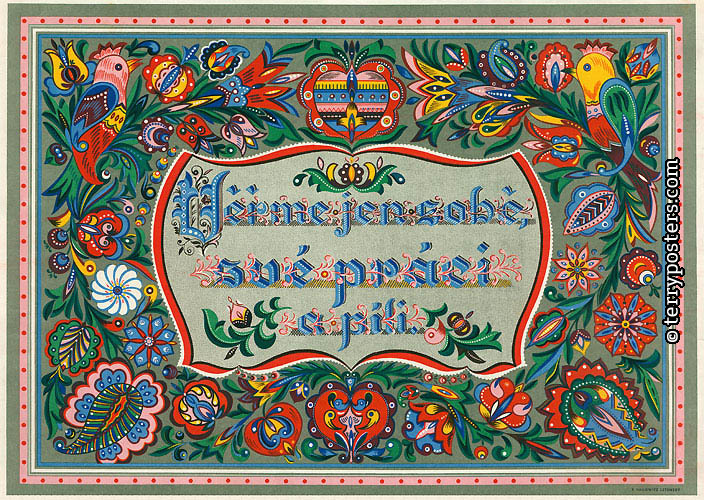 Věřme jen sobě,
své práci
a píli.
© terryposters.com